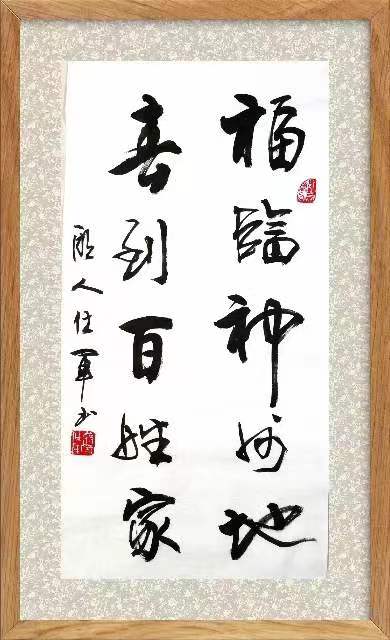 福臨神州地
春到百姓家
人任軍书